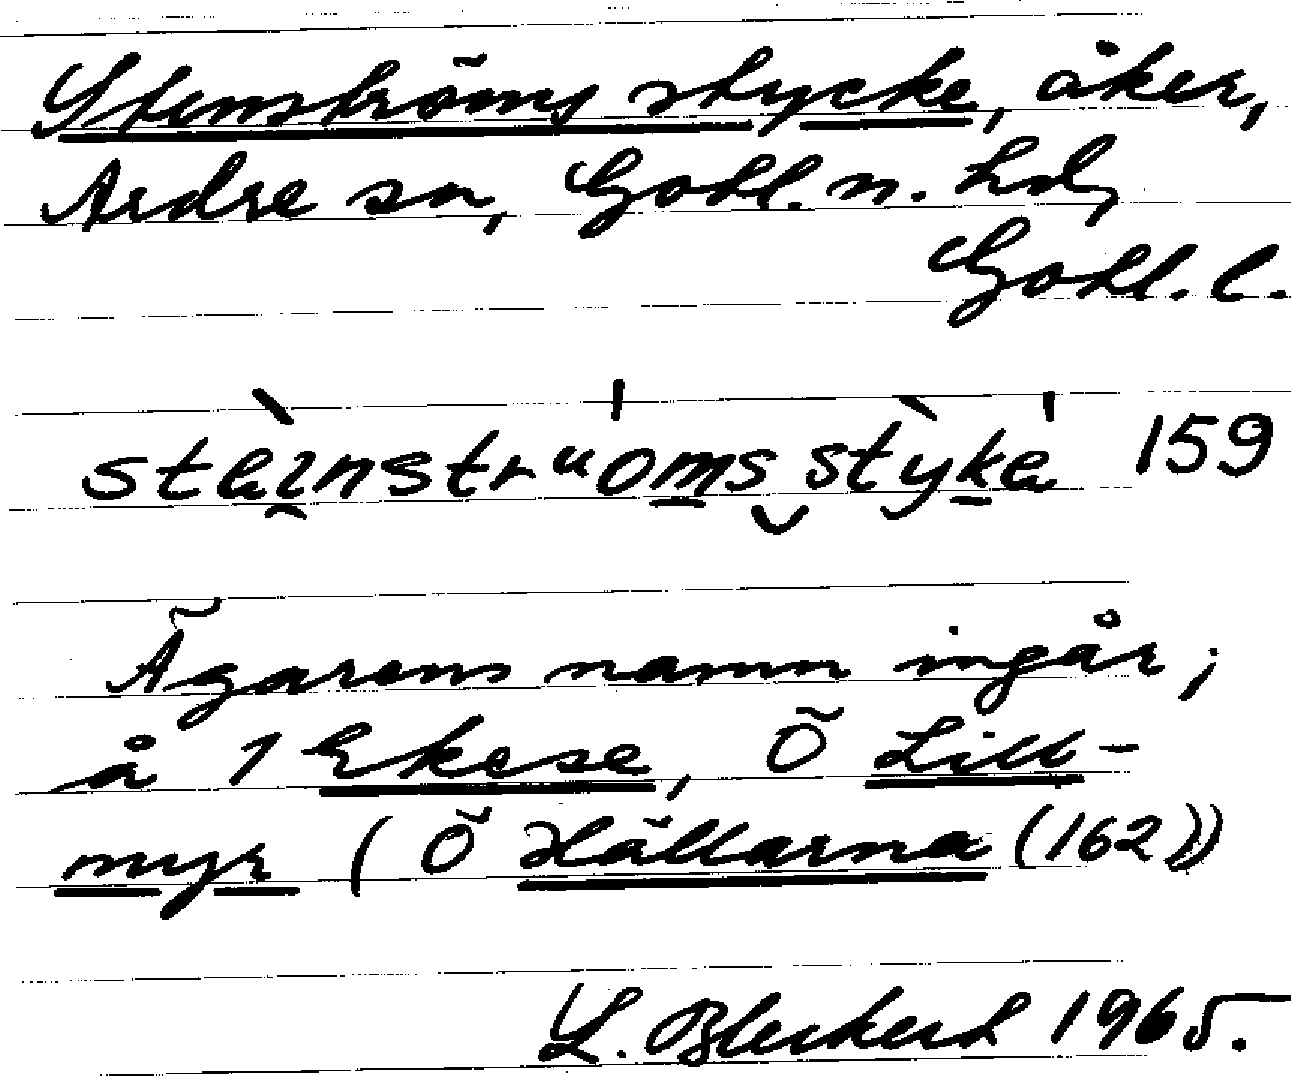 Stenströms stycke, åker,
Ardre sn, Gotl. n. hd,
Gotl. l.
stäinstruoms styka 159
Ägarens namn ingår;
å 1 Ekese, Ö Lill-
myr (Ö Hällarna (162))
L. 1965.